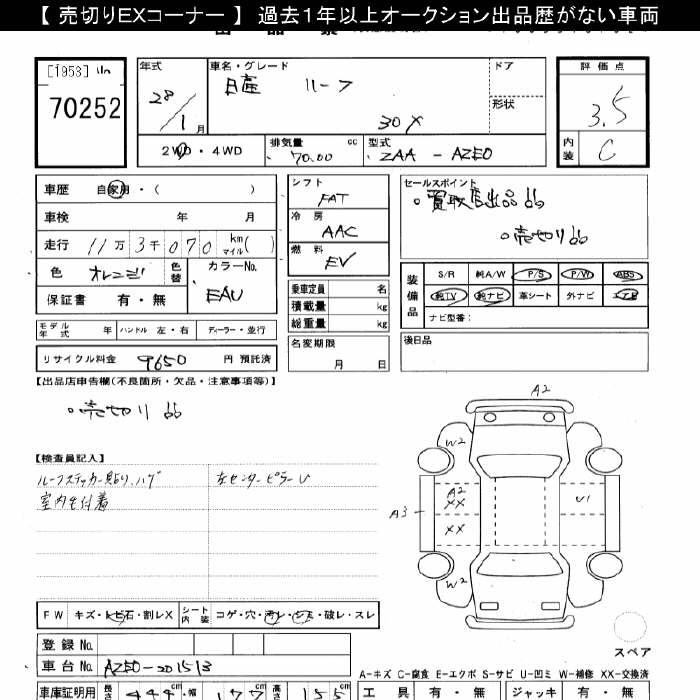 【 売切りEXコーナー 】 過去１年以上オークション出品歴がない車両
[1953]
70252
年式
28/1月
車名・グレード
日産 リーフ
30X
ドア
形状
評価点
3.5
内装
C
2WD・4WD
排気量 cc
70.00
型式
ZAA - AZE0
車歴 自家用・( )
車検 年 月
走行 11万3千070 km マイル( )
色 オレンジ 色替
カラーNo.
EAU
保証書 有・無
モデル年式 年 ハンドル 左・右 ディーラー・並行
リサイクル料金 9650 円 預託済
シフト
FAT
冷房
AAC
燃料
EV
乗車定員 名
積載量 kg
総重量 kg
名変期限
月 日
セールスポイント
。買取店出品品
。売切り品
装備品
S/R 純A/W P/S P/W ABS
純TV 純ナビ 革シート 外ナビ エアB
ナビ型番：
後日品
【出品店申告欄(不良箇所・欠品・注意事項等)】
。売切り品
【検査員記入】
ルーフステッカー貼り、ハゲ
左センターピラーU
室内〆付着
A2
W2
A2
XX
U1
A3
XX
W2
スペア
FW キズ・トビ石・割レX シート内装 コゲ・穴・汚レ・シミ・破レ・スレ
登録 No.
車台 No. AZE0-201513
A-キズ C-腐食 E-エクボ S-サビ U-凹ミ W-補修 XX-交換済
車庫証明用 長さ 444 cm・幅 177 cm 高さ 155 cm
工具 有・無 ジャッキ 有・無